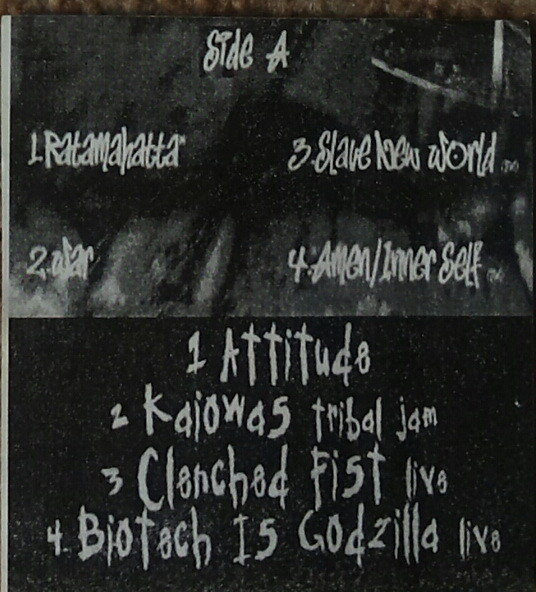 Side A
1. Ratamahatta
3. Slave New World
2. War
4. Amen/Inner Self
1 Attitude
2 Kaiowas tribal jam
3 Clenched Fist live
4. Biotech Is Godzilla live